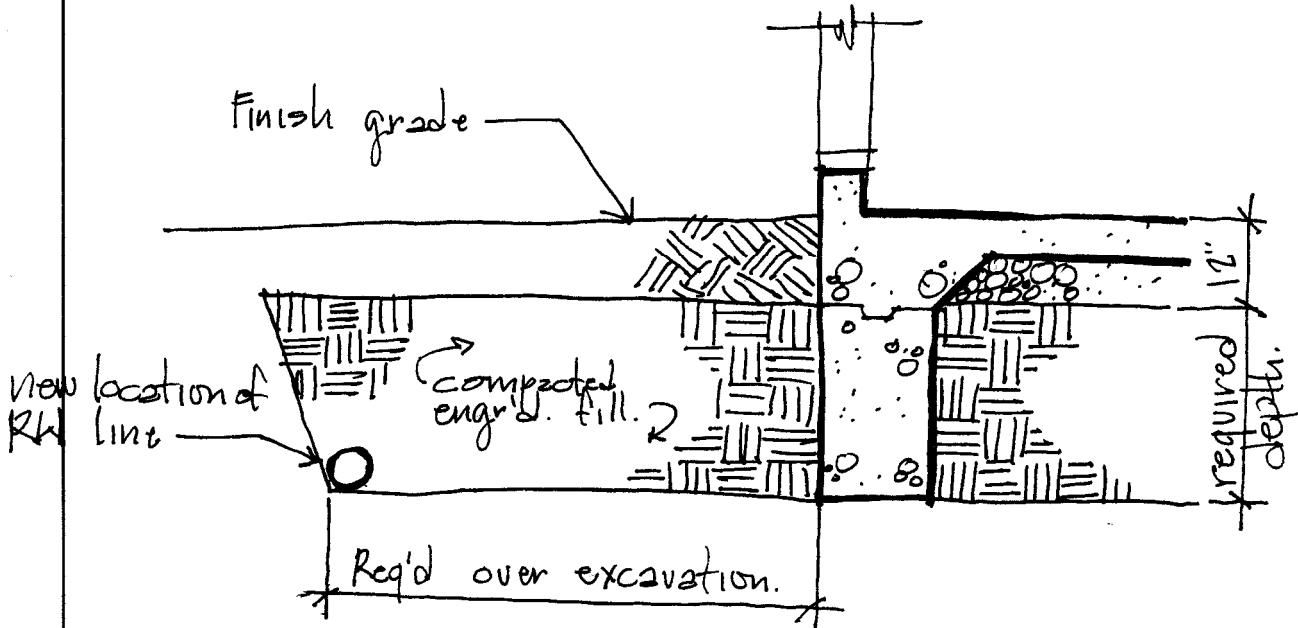 Finish grade
12"
new location of
RW line
compacted
engr'd. fill.
required
depth.
Req'd over excavation.